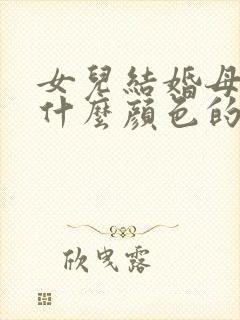 女兒結婚母
什麼顏色的
欣曳露